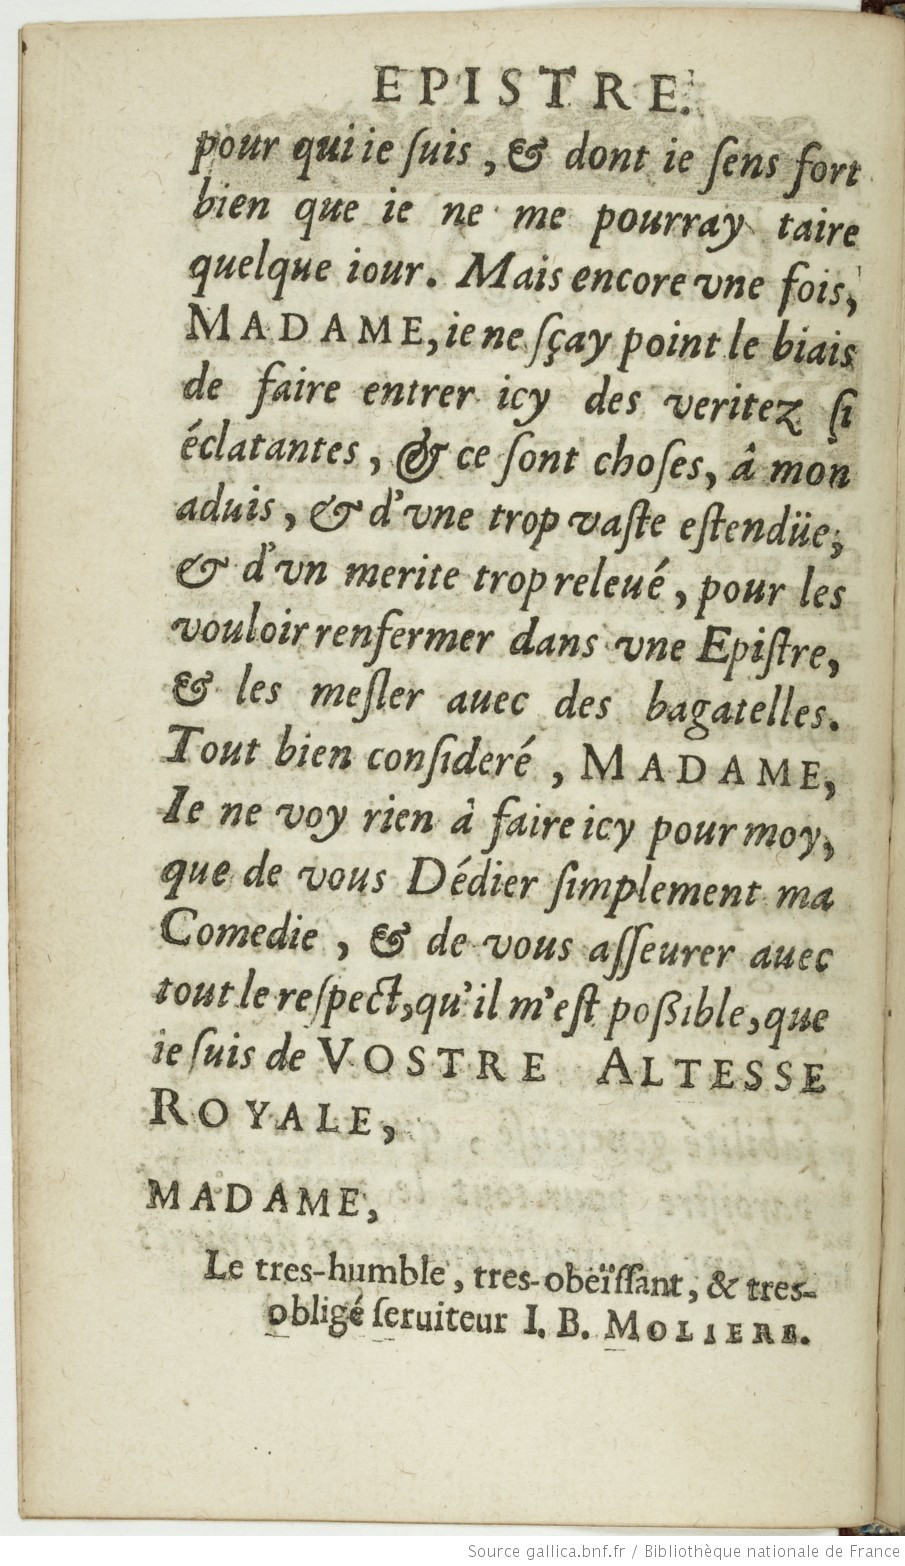 EPISTRE.
pour qui ie ſuis, & dont ie ſens fort
bien que ie ne me pourray taire
quelque iour. Mais encore vne fois,
MADAME, ie ne ſçay point le biais
de faire entrer icy des veritez ſi
éclatantes, & ce ſont choſes, â mon
aduis, & d'vne trop vaſte eſtendüe,
& d'vn merite trop releué, pour les
vouloir renfermer dans vne Epiſtre,
& les meſler auec des bagatelles.
Tout bien conſideré, MADAME,
Ie ne voy rien â faire icy pour moy,
que de vous Dédier ſimplement ma
Comedie, & de vous aſſeurer auec
tout le reſpect, qu'il m'eſt poßible, que
ie ſuis de VOSTRE ALTESSE
ROYALE,
MADAME,
Le tres-humble, tres-obeïſſant, & tres-
obligé ſeruiteur I. B. MOLIERE.
Source gallica.bnf.fr / Bibliothèque nationale de France